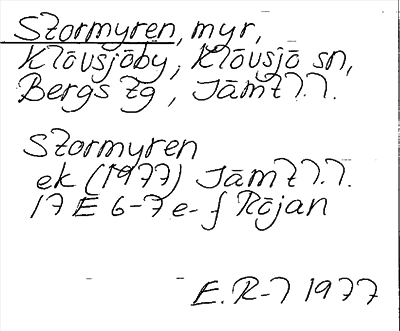 Stormyren, myr,
Klövsjöby, Klövsjö sn,
Bergs tg, Jämtl.
Stormyren
ek (1977) Jämtl.
17 E 6-7 e-f Röjan
E.R-l 1977